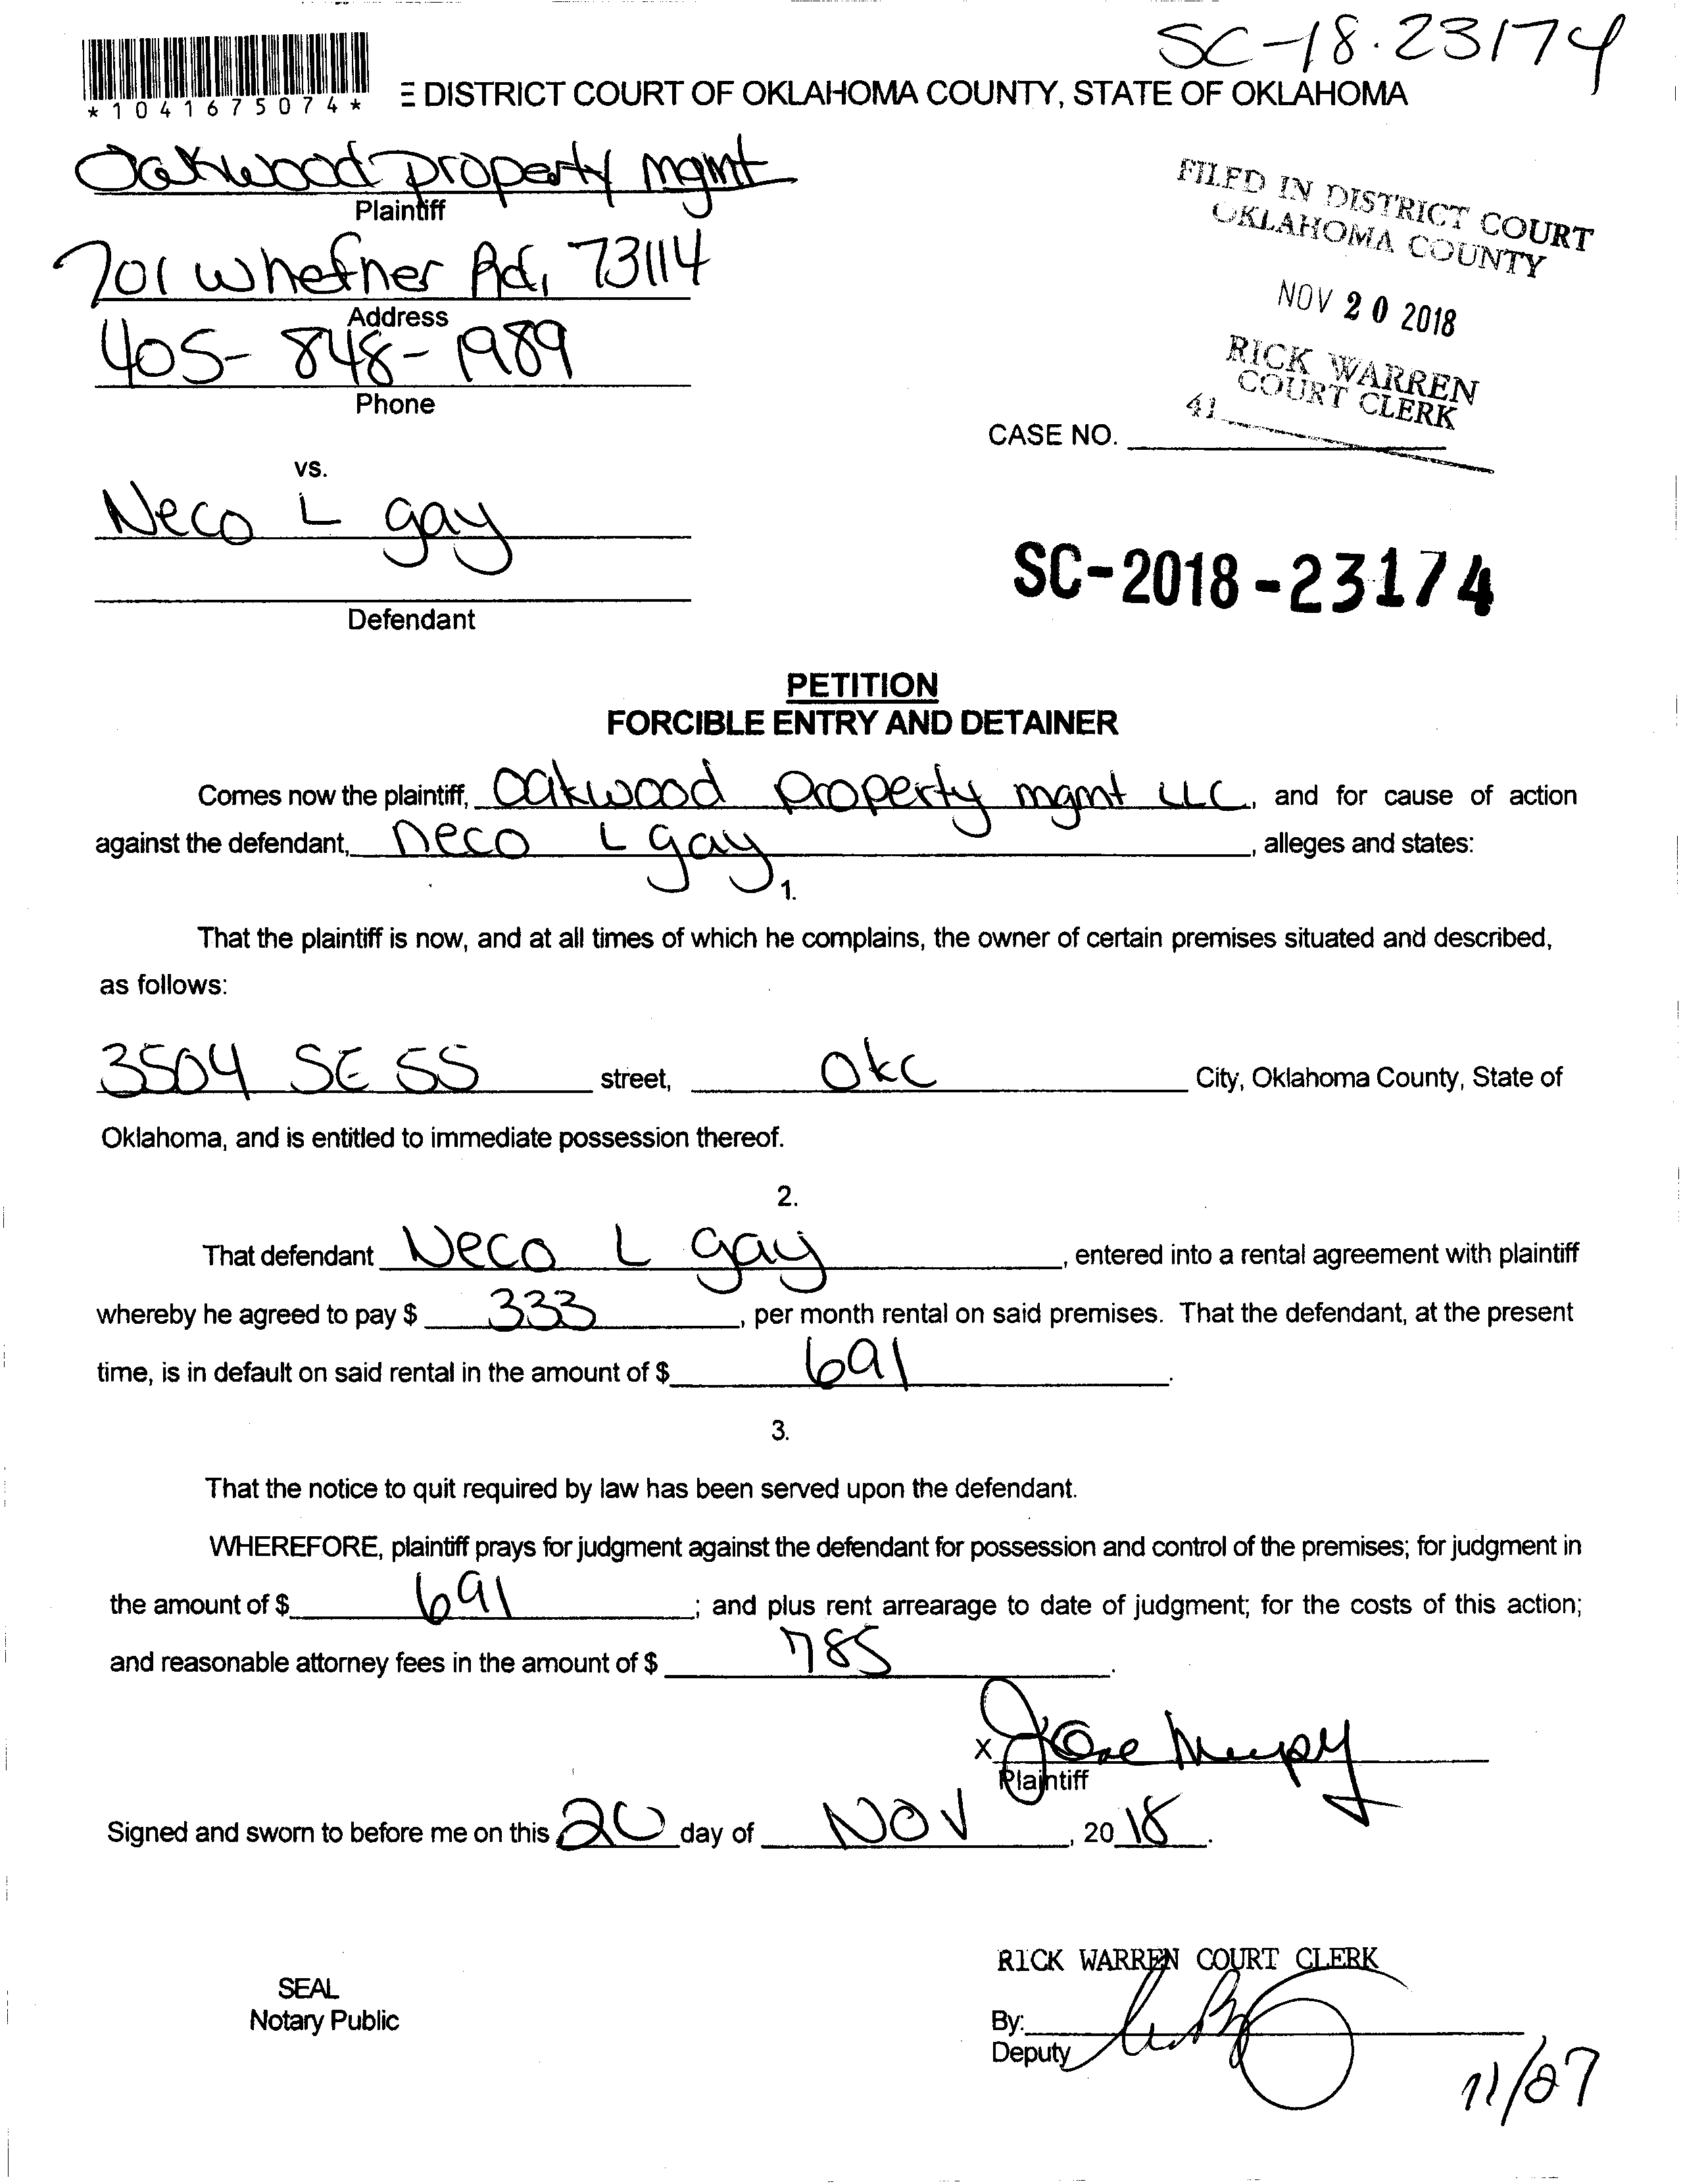 SC-18-23174
*1041675074*
E DISTRICT COURT OF OKLAHOMA COUNTY, STATE OF OKLAHOMA
Oakwood property mgmt
Plaintiff
FILED IN DISTRICT COURT
OKLAHOMA COUNTY
701 Whefner Rd, 73114
Address
NOV 20 2018
405-848-1989
Phone
RICK WARREN
COURT CLERK
41
CASE NO.
vs.
Neco L gay
SC-2018-23174
Defendant
PETITION
FORCIBLE ENTRY AND DETAINER
Comes now the plaintiff, Oakwood property mgmt LLC, and for cause of action
against the defendant, neco L gay, alleges and states:
1.
That the plaintiff is now, and at all times of which he complains, the owner of certain premises situated and described,
as follows:
3504 SE 55 street, OKC City, Oklahoma County, State of
Oklahoma, and is entitled to immediate possession thereof.
2.
That defendant Neco L gay, entered into a rental agreement with plaintiff
whereby he agreed to pay $ 333, per month rental on said premises. That the defendant, at the present
time, is in default on said rental in the amount of $ 691.
3.
That the notice to quit required by law has been served upon the defendant.
WHEREFORE, plaintiff prays for judgment against the defendant for possession and control of the premises; for judgment in
the amount of $ 691; and plus rent arrearage to date of judgment; for the costs of this action;
and reasonable attorney fees in the amount of $ 785.
X
Plaintiff
Signed and sworn to before me on this 20 day of NOV, 2018.
RICK WARREN COURT CLERK
SEAL
Notary Public
By:
Deputy
11/27